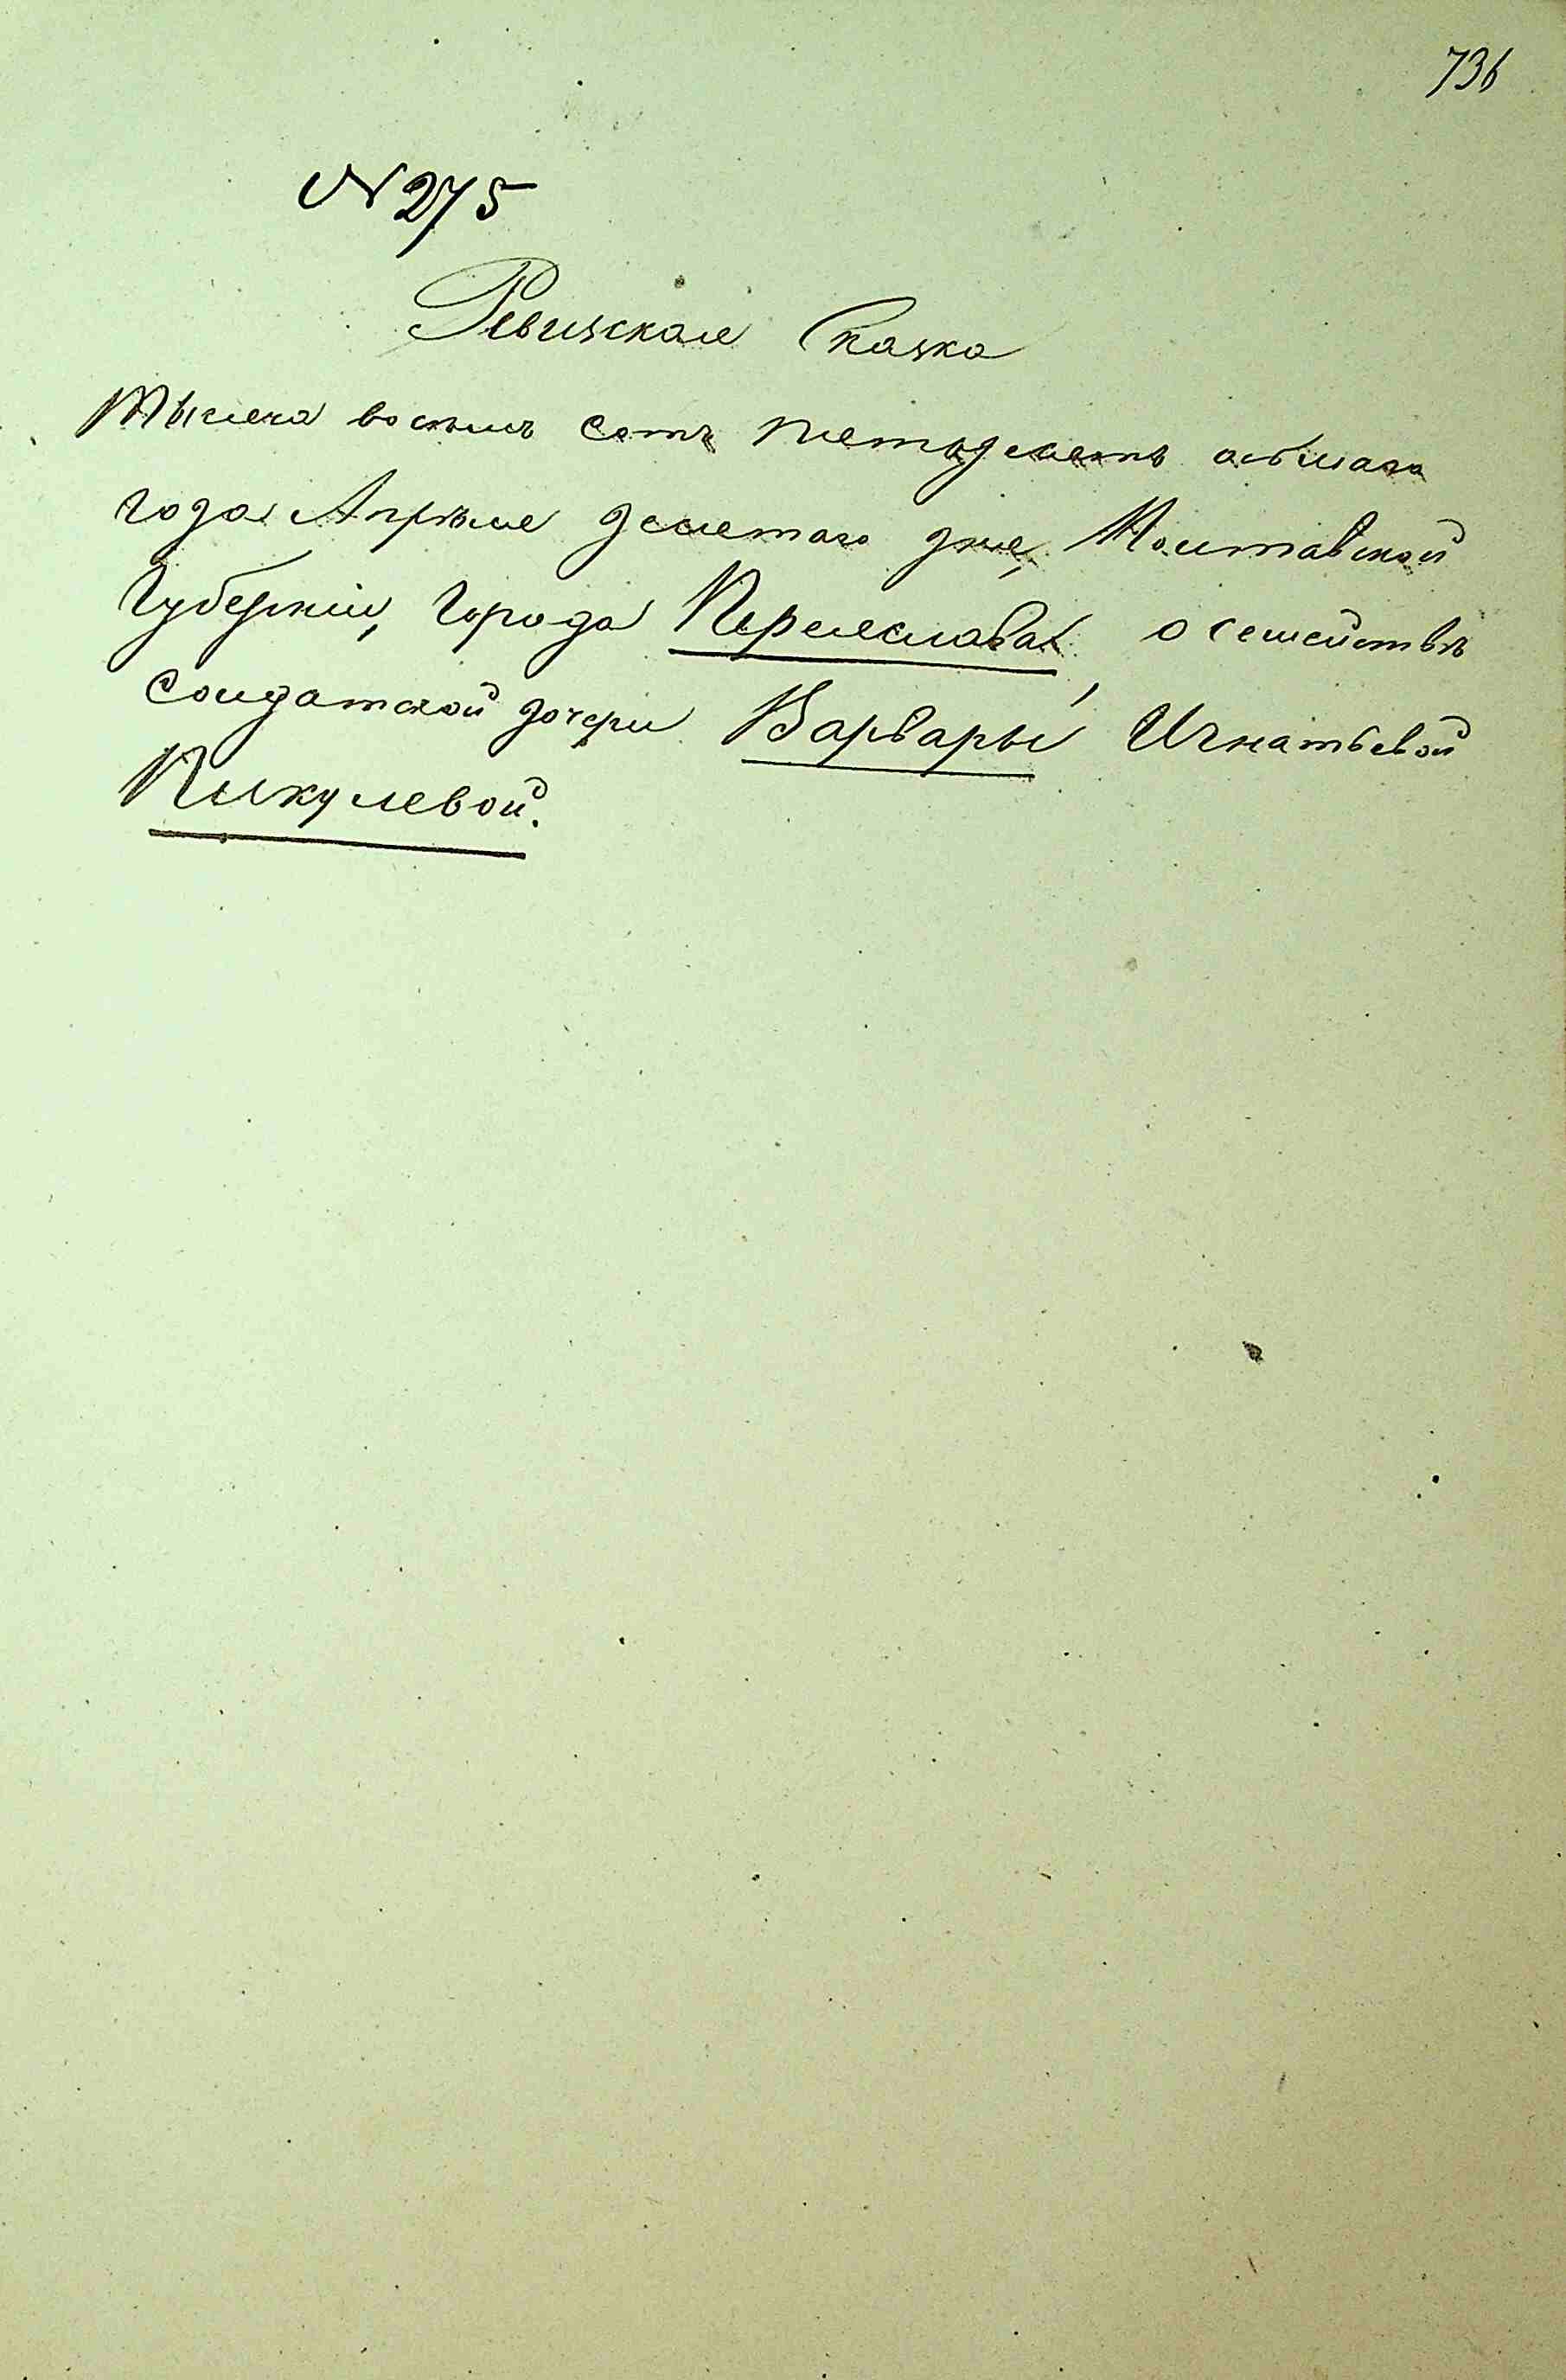 736
№ 275
Ревизская Сказка
Тысяча восемь сотъ пятьдесятъ осьмаго
года Апрѣля десятаго дня, Полтавской
Губерніи, города Переяслава, о семействѣ
солдатской дочери Варвары Игнатьевой
Пикулевой.